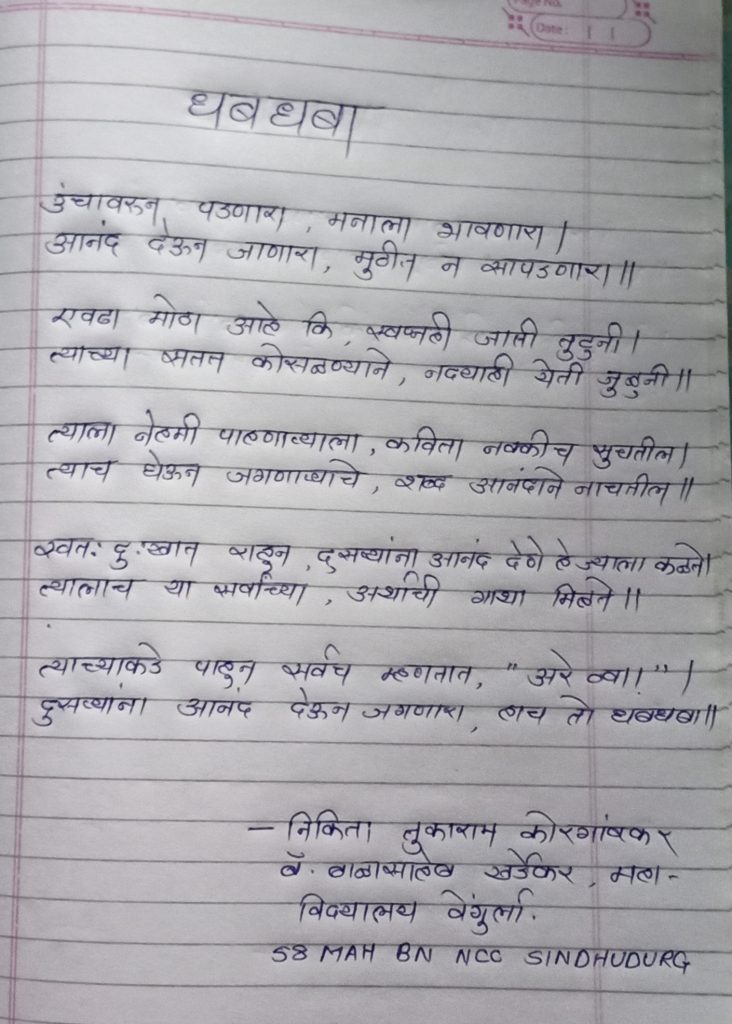 Page No.
Date:
धबधबा
उंचावरुन पडणारा, मनाला भावणारा।
आनंद देऊन जाणारा, मुठीत न सापडणारा॥
एवढा मोठा आहे कि, स्वप्नही जाती तुटुनी।
त्याच्या सतत कोसळण्याने, नदयाही येती जुळुनी॥
त्याला नेहमी पाहणाऱ्याला, कविता नक्कीच सुचतील।
त्याच घेऊन जगणाऱ्याचे, शब्द आनंदाने नाचतील॥
स्वतः दुःखात राहून, दुसऱ्यांना आनंद देणे हे ज्याला कळते।
त्यालाच या सर्वांच्या, अर्थाची गाथा मिळते॥
त्याच्याकडे पाहून सर्वच म्हणतात, "अरे व्वा!"।
दुसऱ्यांना आनंद देऊन जगणारा, हाच तो धबधबा॥
– निकिता तुकाराम कोरगांवकर
बॅ. बाळासाहेब खर्डेकर, महा-
विद्यालय वेंगुर्ला.
58 MAH BN NCC SINDHUDURG